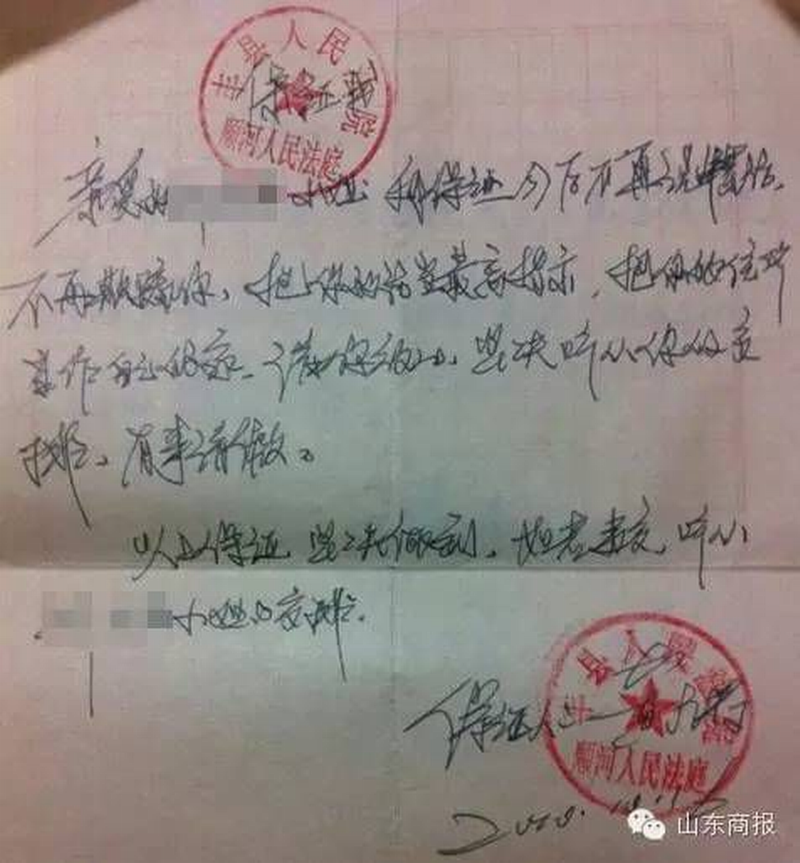 丰县人民法院
保证书
顺河人民法庭
亲爱的 小姐 我保证今后不再说谎话、
不再欺骗你、把你的话当最高指示、把你的住所
当作自己的家、请你放心、坚决听从你的安
排、有事请假。
以上保证 坚决做到、如若违反 听从
小姐的安排.
县人民法院
保证人
顺河人民法庭
2010.
山东商报